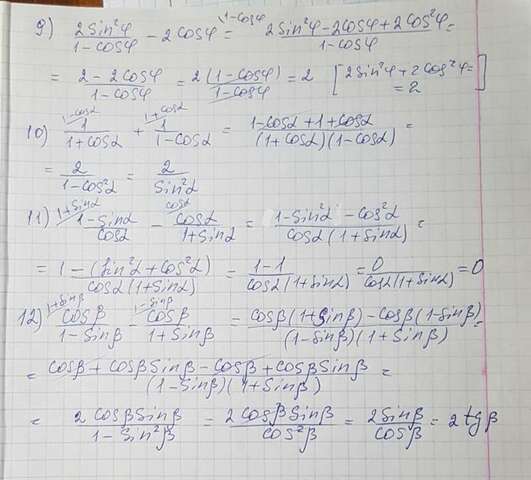 9) 2Sin²φ/(1-cosφ) - 2cosφ (1-cosφ) = (2Sin²φ-2cosφ+2cos²φ)/(1-cosφ) =
= (2-2cosφ)/(1-cosφ) = 2(1-cosφ)/(1-cosφ) = 2 [2Sin²φ+2cos²φ= =2]
10) (1-cosα) 1/(1+cosα) + (1+cosα) 1/(1-cosα) = (1-cosα+1+cosα)/((1+cosα)(1-cosα)) =
= 2/(1-cos²α) = 2/Sin²α
11) (1+Sinα) (1-Sinα)/cosα - (cosα) cosα/(1+Sinα) = (1-Sin²α-cos²α)/(cosα(1+Sinα)) =
= (1-(Sin²α+cos²α))/(cosα(1+Sinα)) = (1-1)/(cosα(1+Sinα)) = 0/(cosα(1+Sinα)) = 0
12) (1+Sinβ) cosβ/(1-Sinβ) - (1-Sinβ) cosβ/(1+Sinβ) = (cosβ(1+Sinβ)-cosβ(1-Sinβ))/((1-Sinβ)(1+Sinβ)) =
= (cosβ+cosβSinβ-cosβ+cosβSinβ)/((1-Sinβ)(1+Sinβ)) =
= 2cosβSinβ/(1-Sin²β) = 2cosβSinβ/cos²β = 2Sinβ/cosβ = 2tgβ